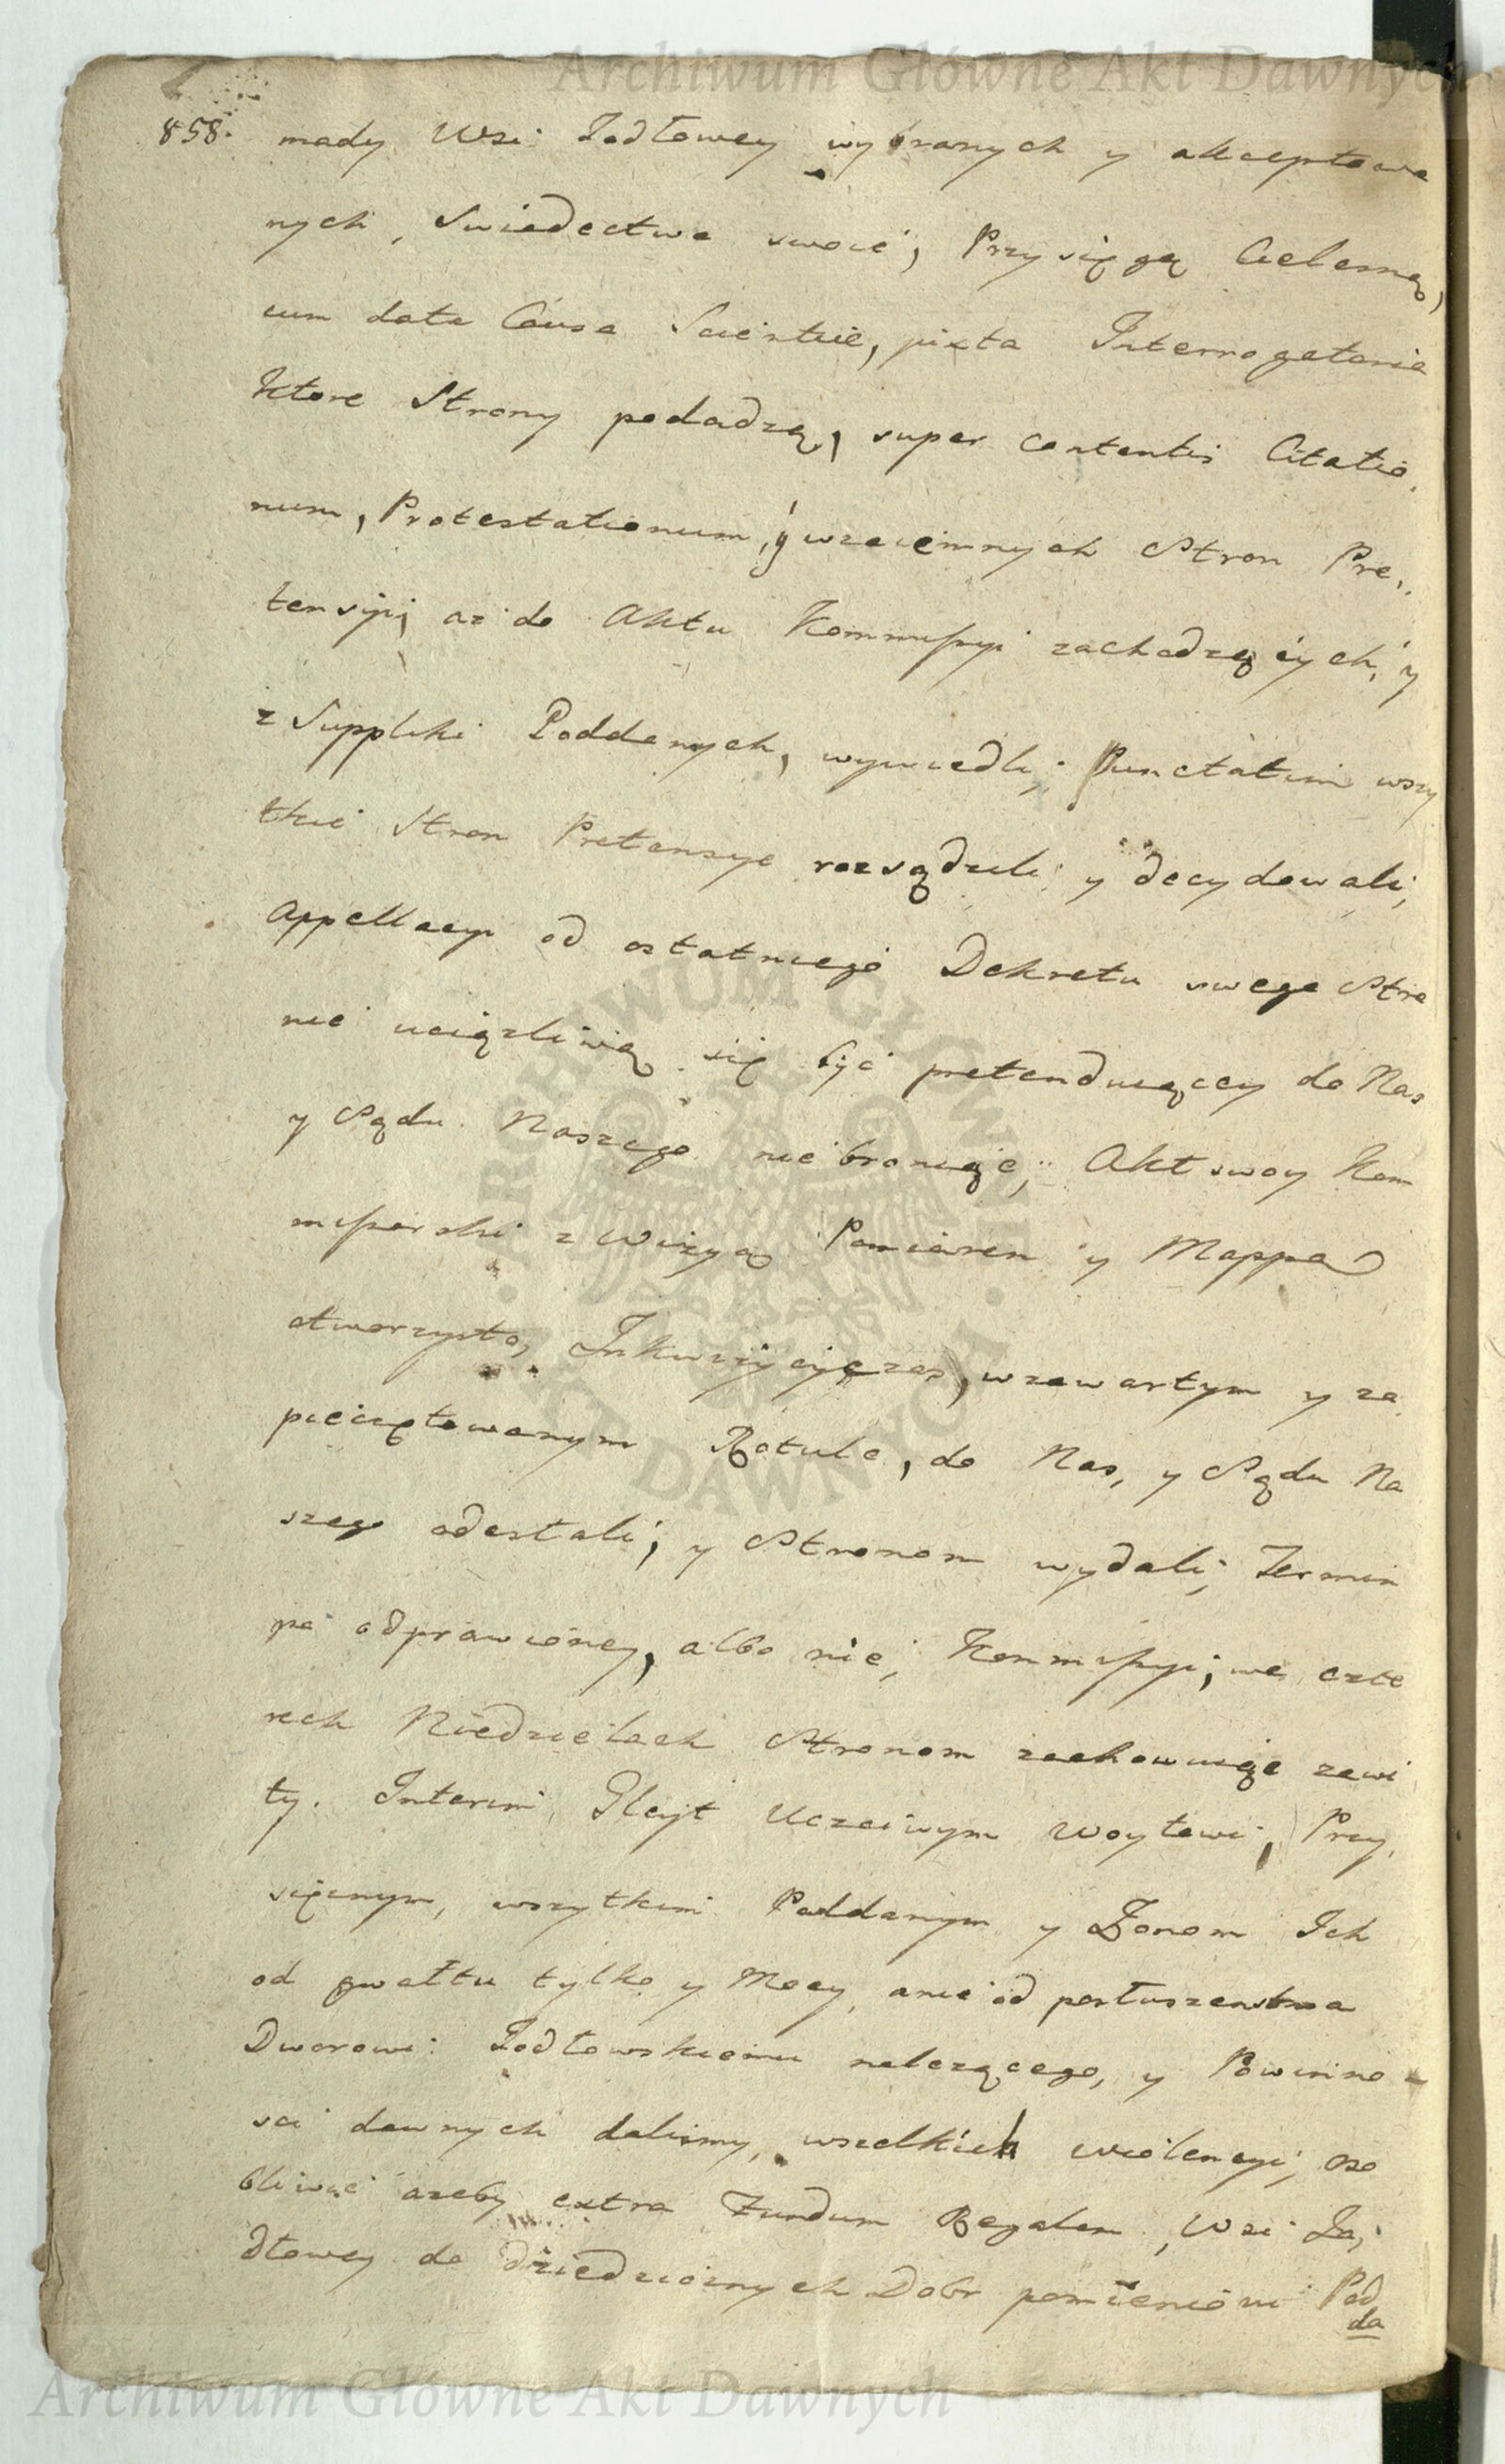 Archiwum Główne Akt Dawnych
858. mady Wsi Jodłowey wybranych y akceptowa
nych, Swiadectwa swoie, Przysięgą Cielesną,
cum data Causa Scientiæ, juxta Interrogatoria
ktore Strony podadzą, super contentis Citatio,
num, Protestationum, y wzaiemnych Stron Pre,,
tensyi, az do Aktu Kommissyi zachodzących, y
z Suppliki Poddanych, wywiedli; Punctatim wszy
tkie Stron Pretensye rozsądzili y decydowali,
Appellacyi od ostatniego Dekretu swego Stro
nie uciązliwą się być pretenduiącey do Nas
y Sądu Naszego nie broniąc; Akt swoy Kom
missarski z Wizyą Pomiarem y Mappą
otworzysto, Inkwizycyę zas, w zawartym y za
pieczętowanym Rotule, do Nas, y Sądu Na
szego odesłali, y Stronom wydali, Termin
po odprawioney, albo nie, Kommissyi, we czte
rech Niedzielach Stronom zachowuiąc zawi
ty. Interim Gleyt Uczciwym Woytowi, Przy,
sięznym, wszytkim Poddanym y Zonom Ich
od gwałtu tylko y Mocy, a nie od posłuszenstwa
Dworowi Jodłowskiemu nalezącego, y Powinno =
sci dawnych dalismy, wszelkich wiolencyi, oso
bliwie azeby extra Fundum Regalem, Wsi Jo,
dłowey do Dziedzicznych Dobr pomienieni Pod
da
ARCHIWUM GŁÓWNE AKT DAWNYCH
Archiwum Główne Akt Dawnych